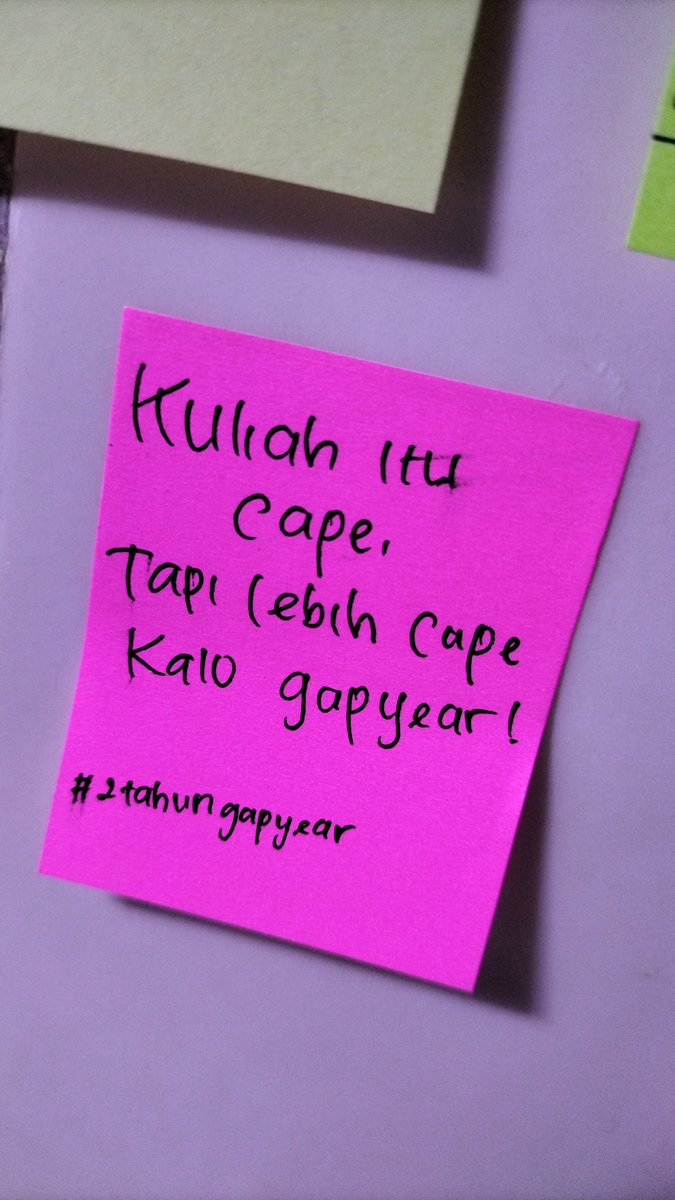 Kuliah itu
cape,
Tapi lebih cape
Kalo gapyear!
#2tahungapyear